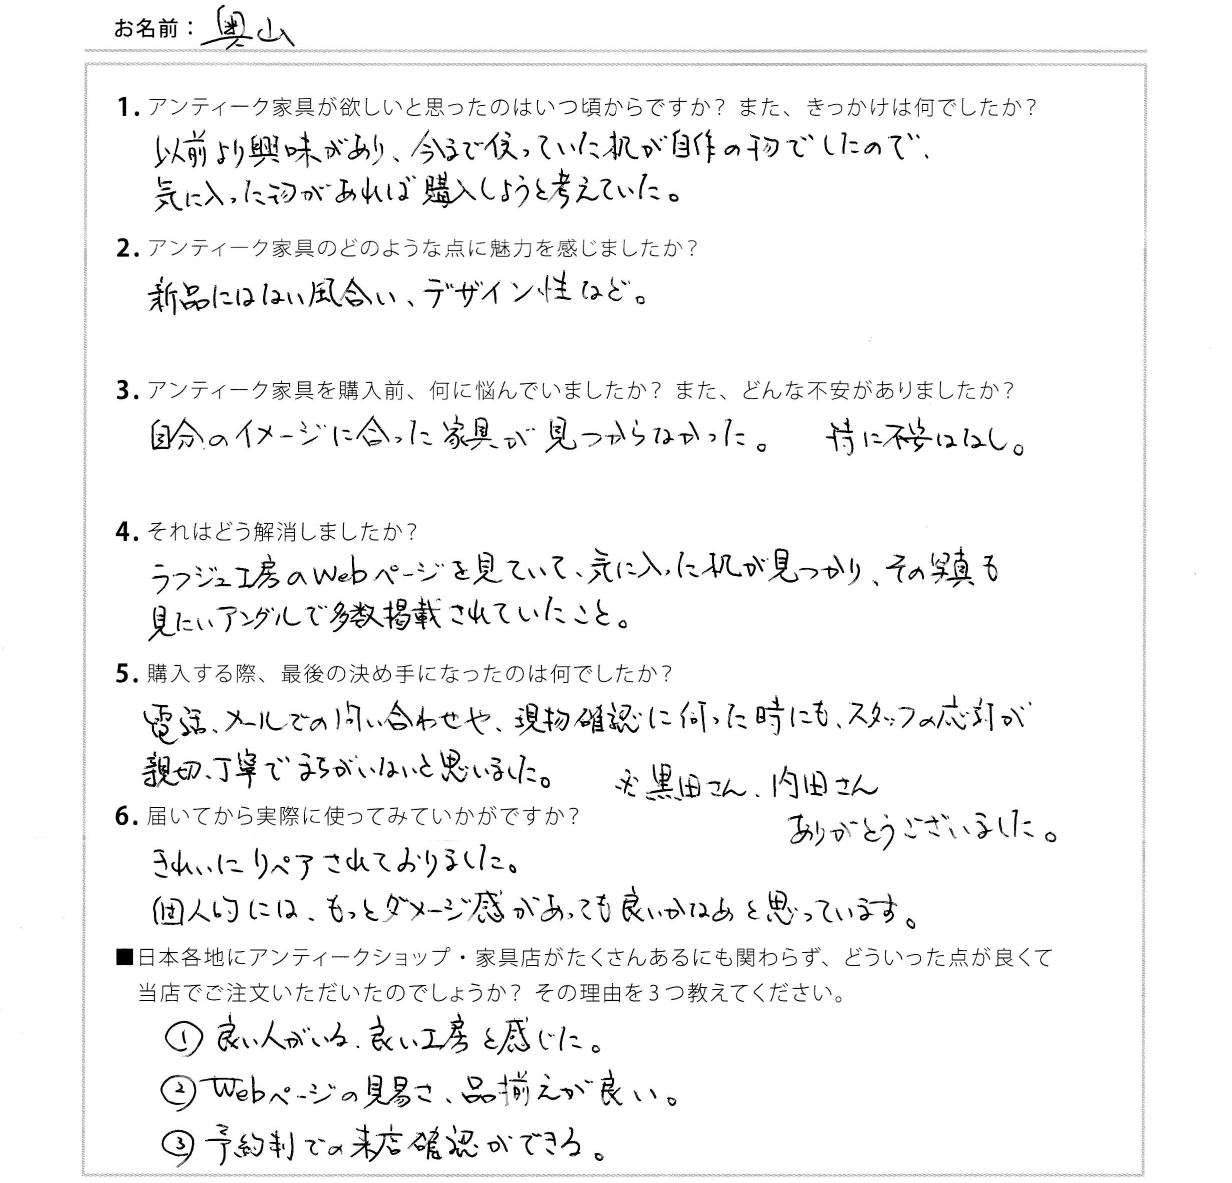 お名前：奥山
1. アンティーク家具が欲しいと思ったのはいつ頃からですか？ また、きっかけは何でしたか？
以前より興味があり、今まで使っていた机が自作の物でしたので、
気に入った物があれば購入しようと考えていた。
2. アンティーク家具のどのような点に魅力を感じましたか？
新品にはない風合い、デザイン性など。
3. アンティーク家具を購入前、何に悩んでいましたか？ また、どんな不安がありましたか？
自分のイメージに合った家具が見つからなかった。 特に不安はなし。
4. それはどう解消しましたか？
ラフジュ工房のWebページを見ていて、気に入った机が見つかり、その写真も
見たいアングルで多数掲載されていたこと。
5. 購入する際、最後の決め手になったのは何でしたか？
電話、メールでの問い合わせや、現物確認に伺った時にも、スタッフの応対が
親切、丁寧でまちがいないと思いました。 ※黒田さん、内田さん
ありがとうございました。
6. 届いてから実際に使ってみていかがですか？
きれいにリペアされておりました。
個人的には、もっとダメージ感があっても良いかなあと思っています。
■日本各地にアンティークショップ・家具店がたくさんあるにも関わらず、どういった点が良くて
当店でご注文いただいたのでしょうか？ その理由を３つ教えてください。
① 良い人がいる、良い工房と感じた。
② Webページの見易さ、品揃えが良い。
③ 予約制での来店確認ができる。